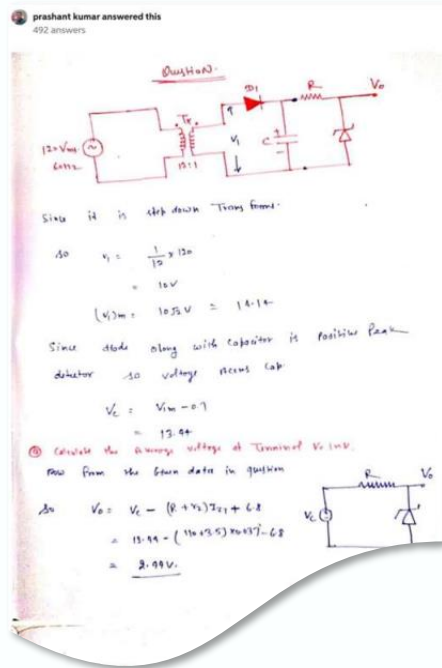 prashant kumar answered this
492 answers
Question.
D1
R
Vo
Tx
120Vrms
60Hz
V1
C
12:1
Since it is step down Trans former.
so V1 = 1/12 x 120
= 10V
(V1)m = 10√2 V = 14.14
Since diode along with capacitor is Positive Peak
detector so voltage across cap
Vc = V1m - 0.7
= 13.44
Calculate the Average voltage at Terminal Vo
Now from the Given data in question
R
Vo
Vc
so Vo = Vc - (R + rz) + 6.8
= 13.44 - - 6.8
= 2.99V.